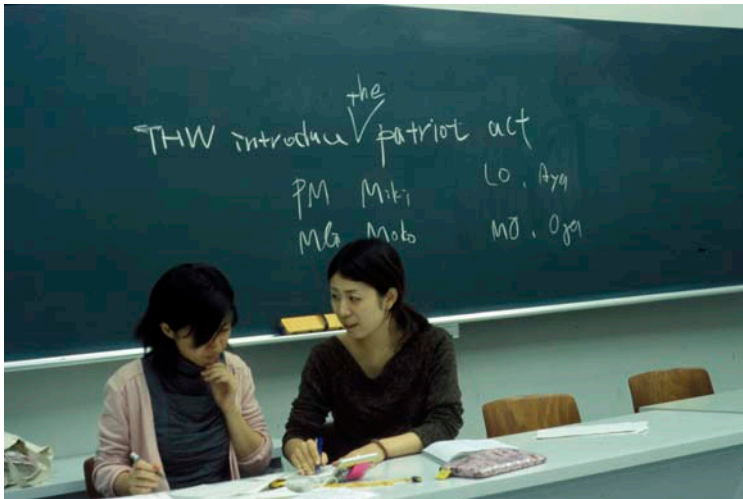 THW introduce the patriot act
PM Miki
LO. Aya
MG Moko
MO. Oya